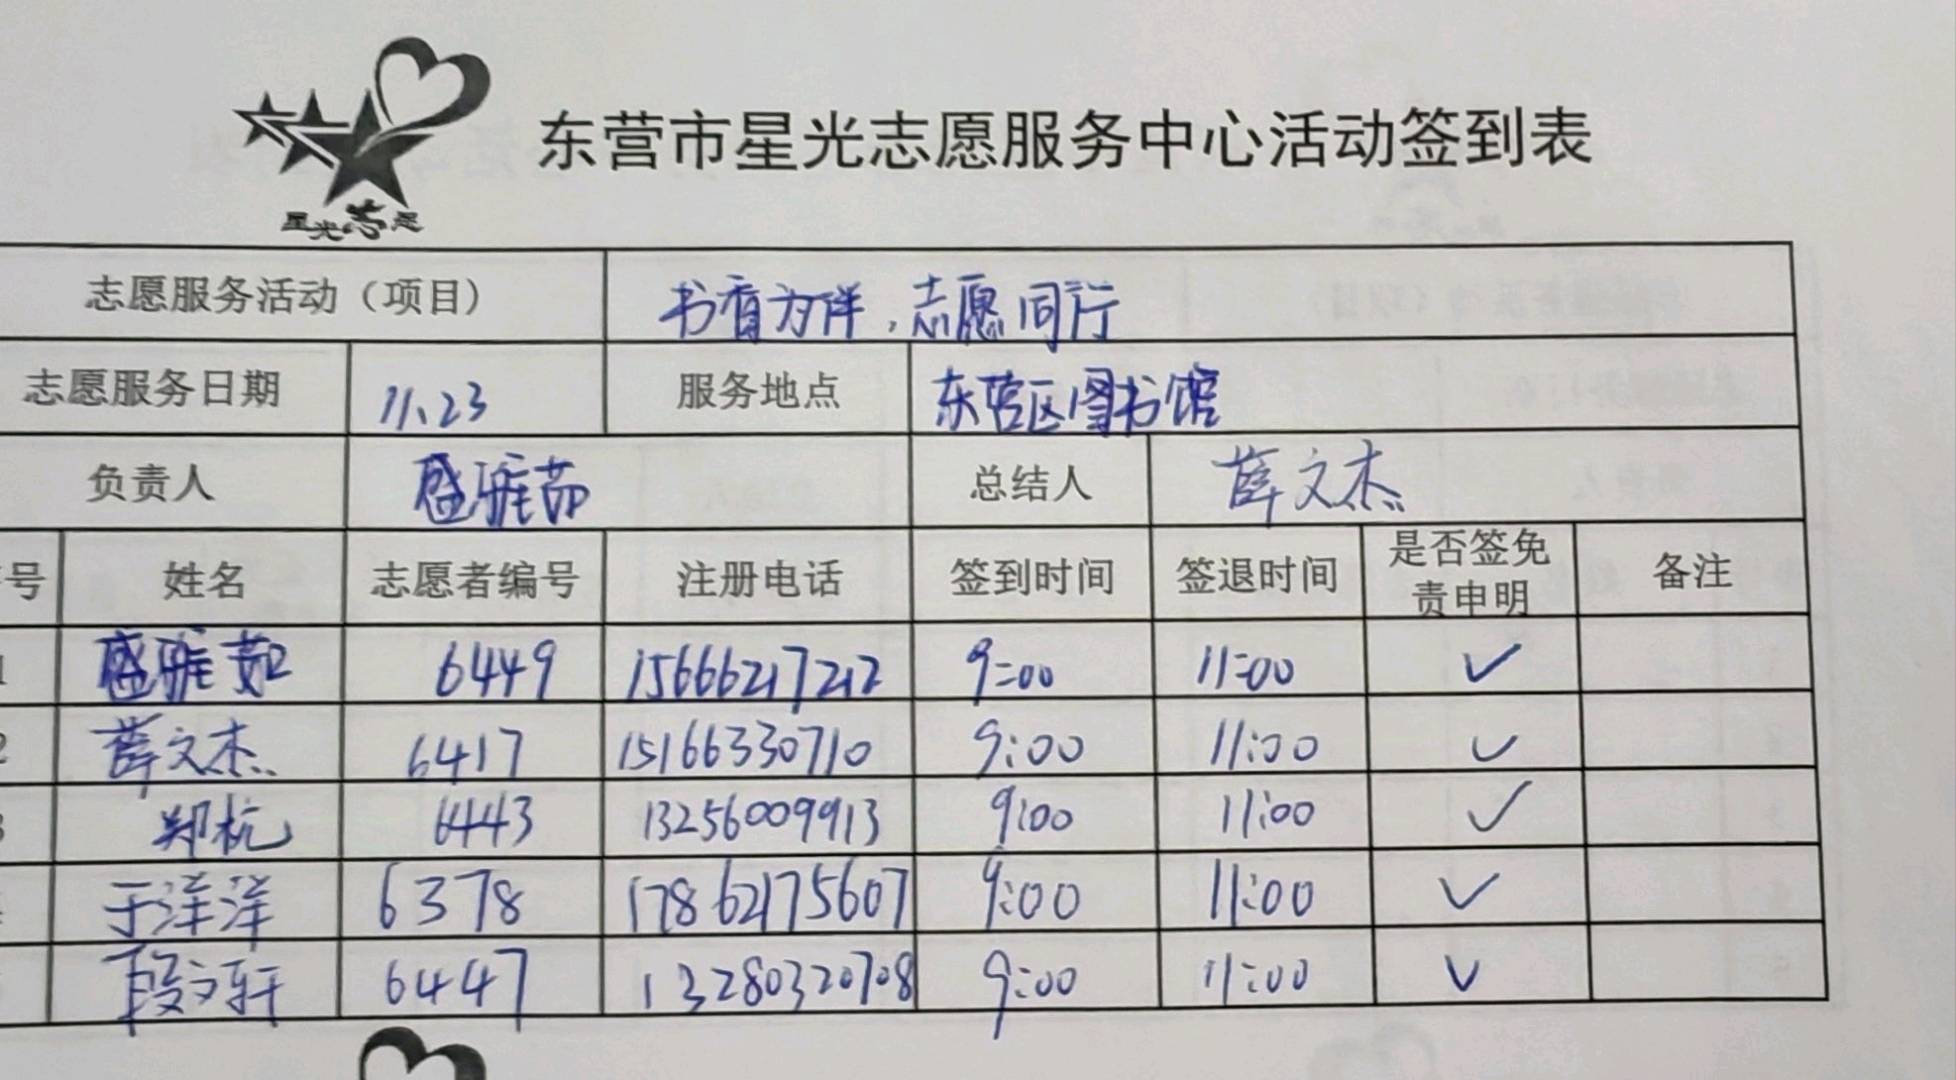 东营市星光志愿服务中心活动签到表
星光志愿
志愿服务活动（项目） 书香为伴，志愿同行
志愿服务日期 11.23 服务地点 东营区图书馆
负责人 盛雅茹 总结人 薛文杰
号 姓名 志愿者编号 注册电话 签到时间 签退时间 是否签免责申明 备注
1 盛雅茹 6449 15666217212 9:00 11:00 ✓
2 薛文杰 6417 15166330710 9:00 11:00 ✓
3 郑杭 6443 13256009913 9:00 11:00 ✓
于洋洋 6378 17862175607 9:00 11:00 ✓
段文轩 6447 13280320708 9:00 11:00 ✓